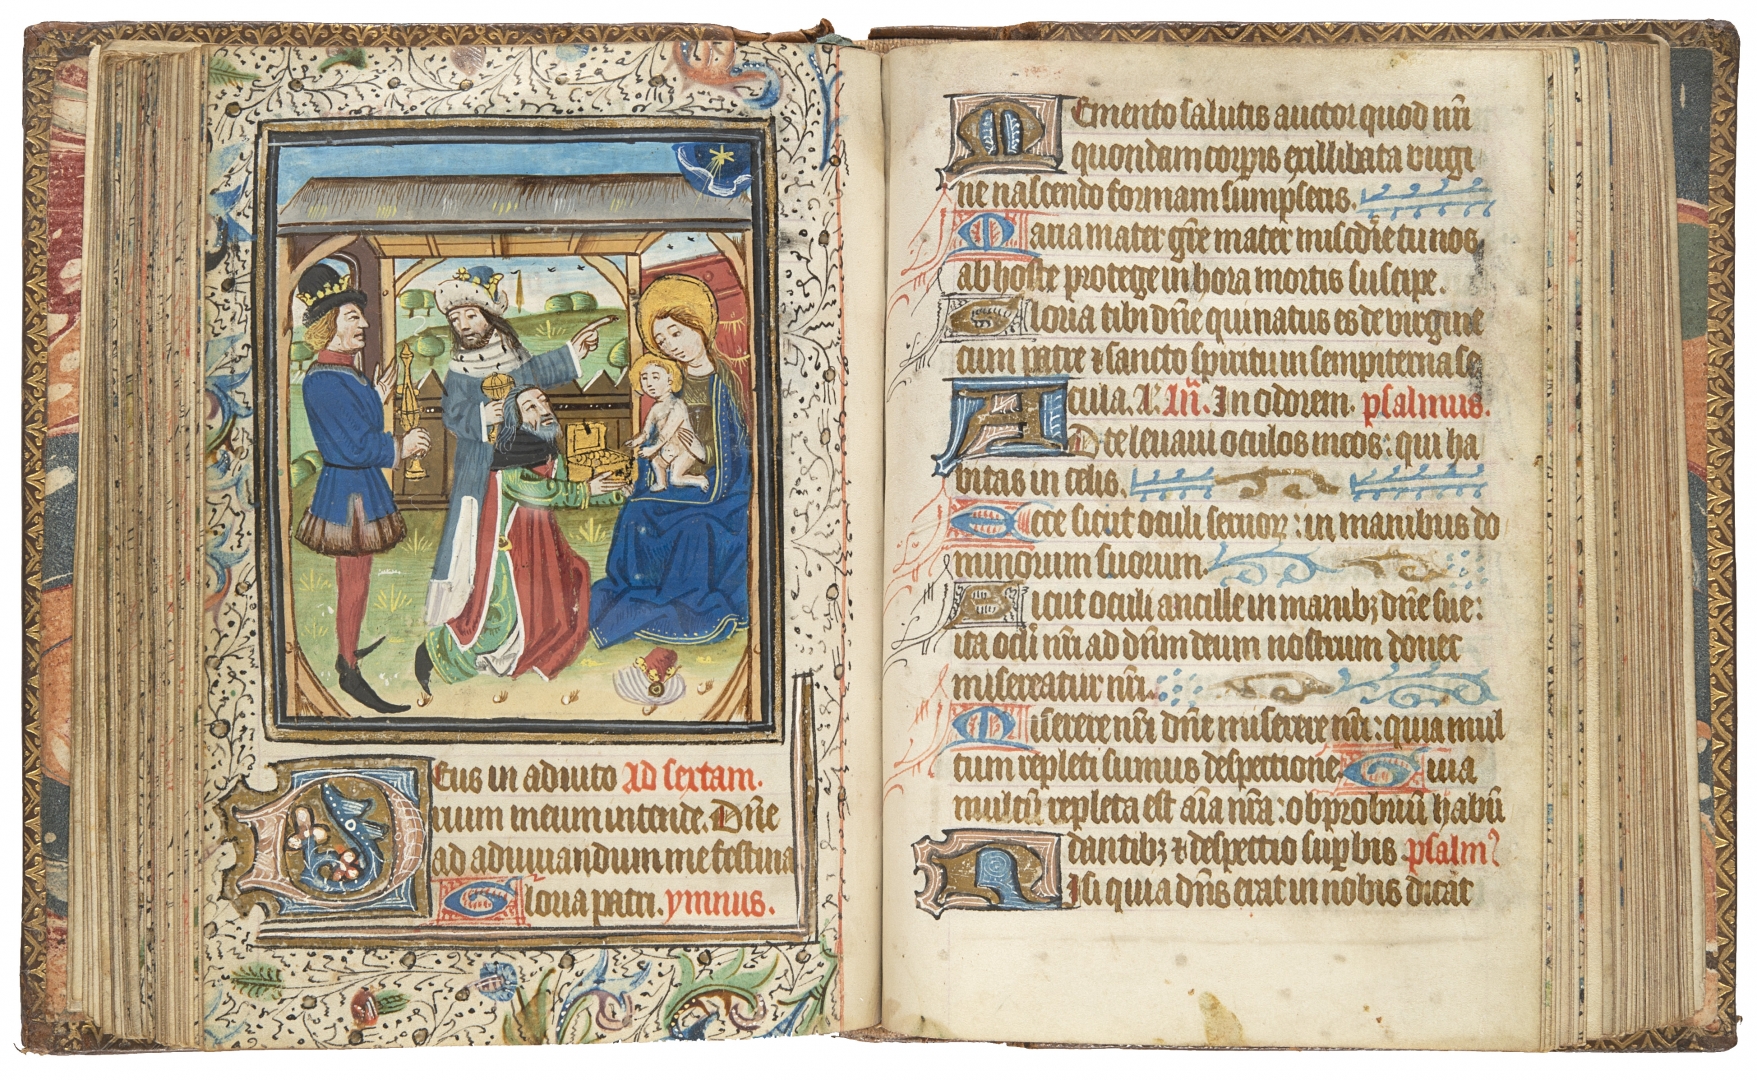 Deus in adiuto Ad sextam.
rium meum intende. Dn̄e
ad adiuuandum me festina
Gloria patri. ymnus.
Memento salutis auctor quod nr̄i
quondam corp̲is ex illibata virgi
ne nascendo formam sumpseris.
Maria mater gr̄e mater mis̄cdīe tu nos
ab hoste protege in hora mortis suscipe.
Gloria tibi dn̄e qui natus es de virgine
cum patre ⁊ sancto spiritu in sempiterna se
cula. A'. Añ. In odorem. psalmus.
AD te leuaui oculos meos: qui ha
bitas in celis.
Ecce sicut oculi seruoꝝ: in manibus do
minorum suorum.
Sicut oculi ancille in manibꝫ dn̄e sue:
ita ocl̄i nr̄i ad dn̄m deum nostrum donec
misereatur nr̄i.
Miserere nr̄i dn̄e miserere nr̄i: quia mul
tum repleti sumus despectione. Quia
multū repleta est aīa nr̄a: obprobriū habū
dantibꝫ ⁊ despectio suꝑbis. psalmꝰ
Nisi quia dn̄s erat in nobis dicat